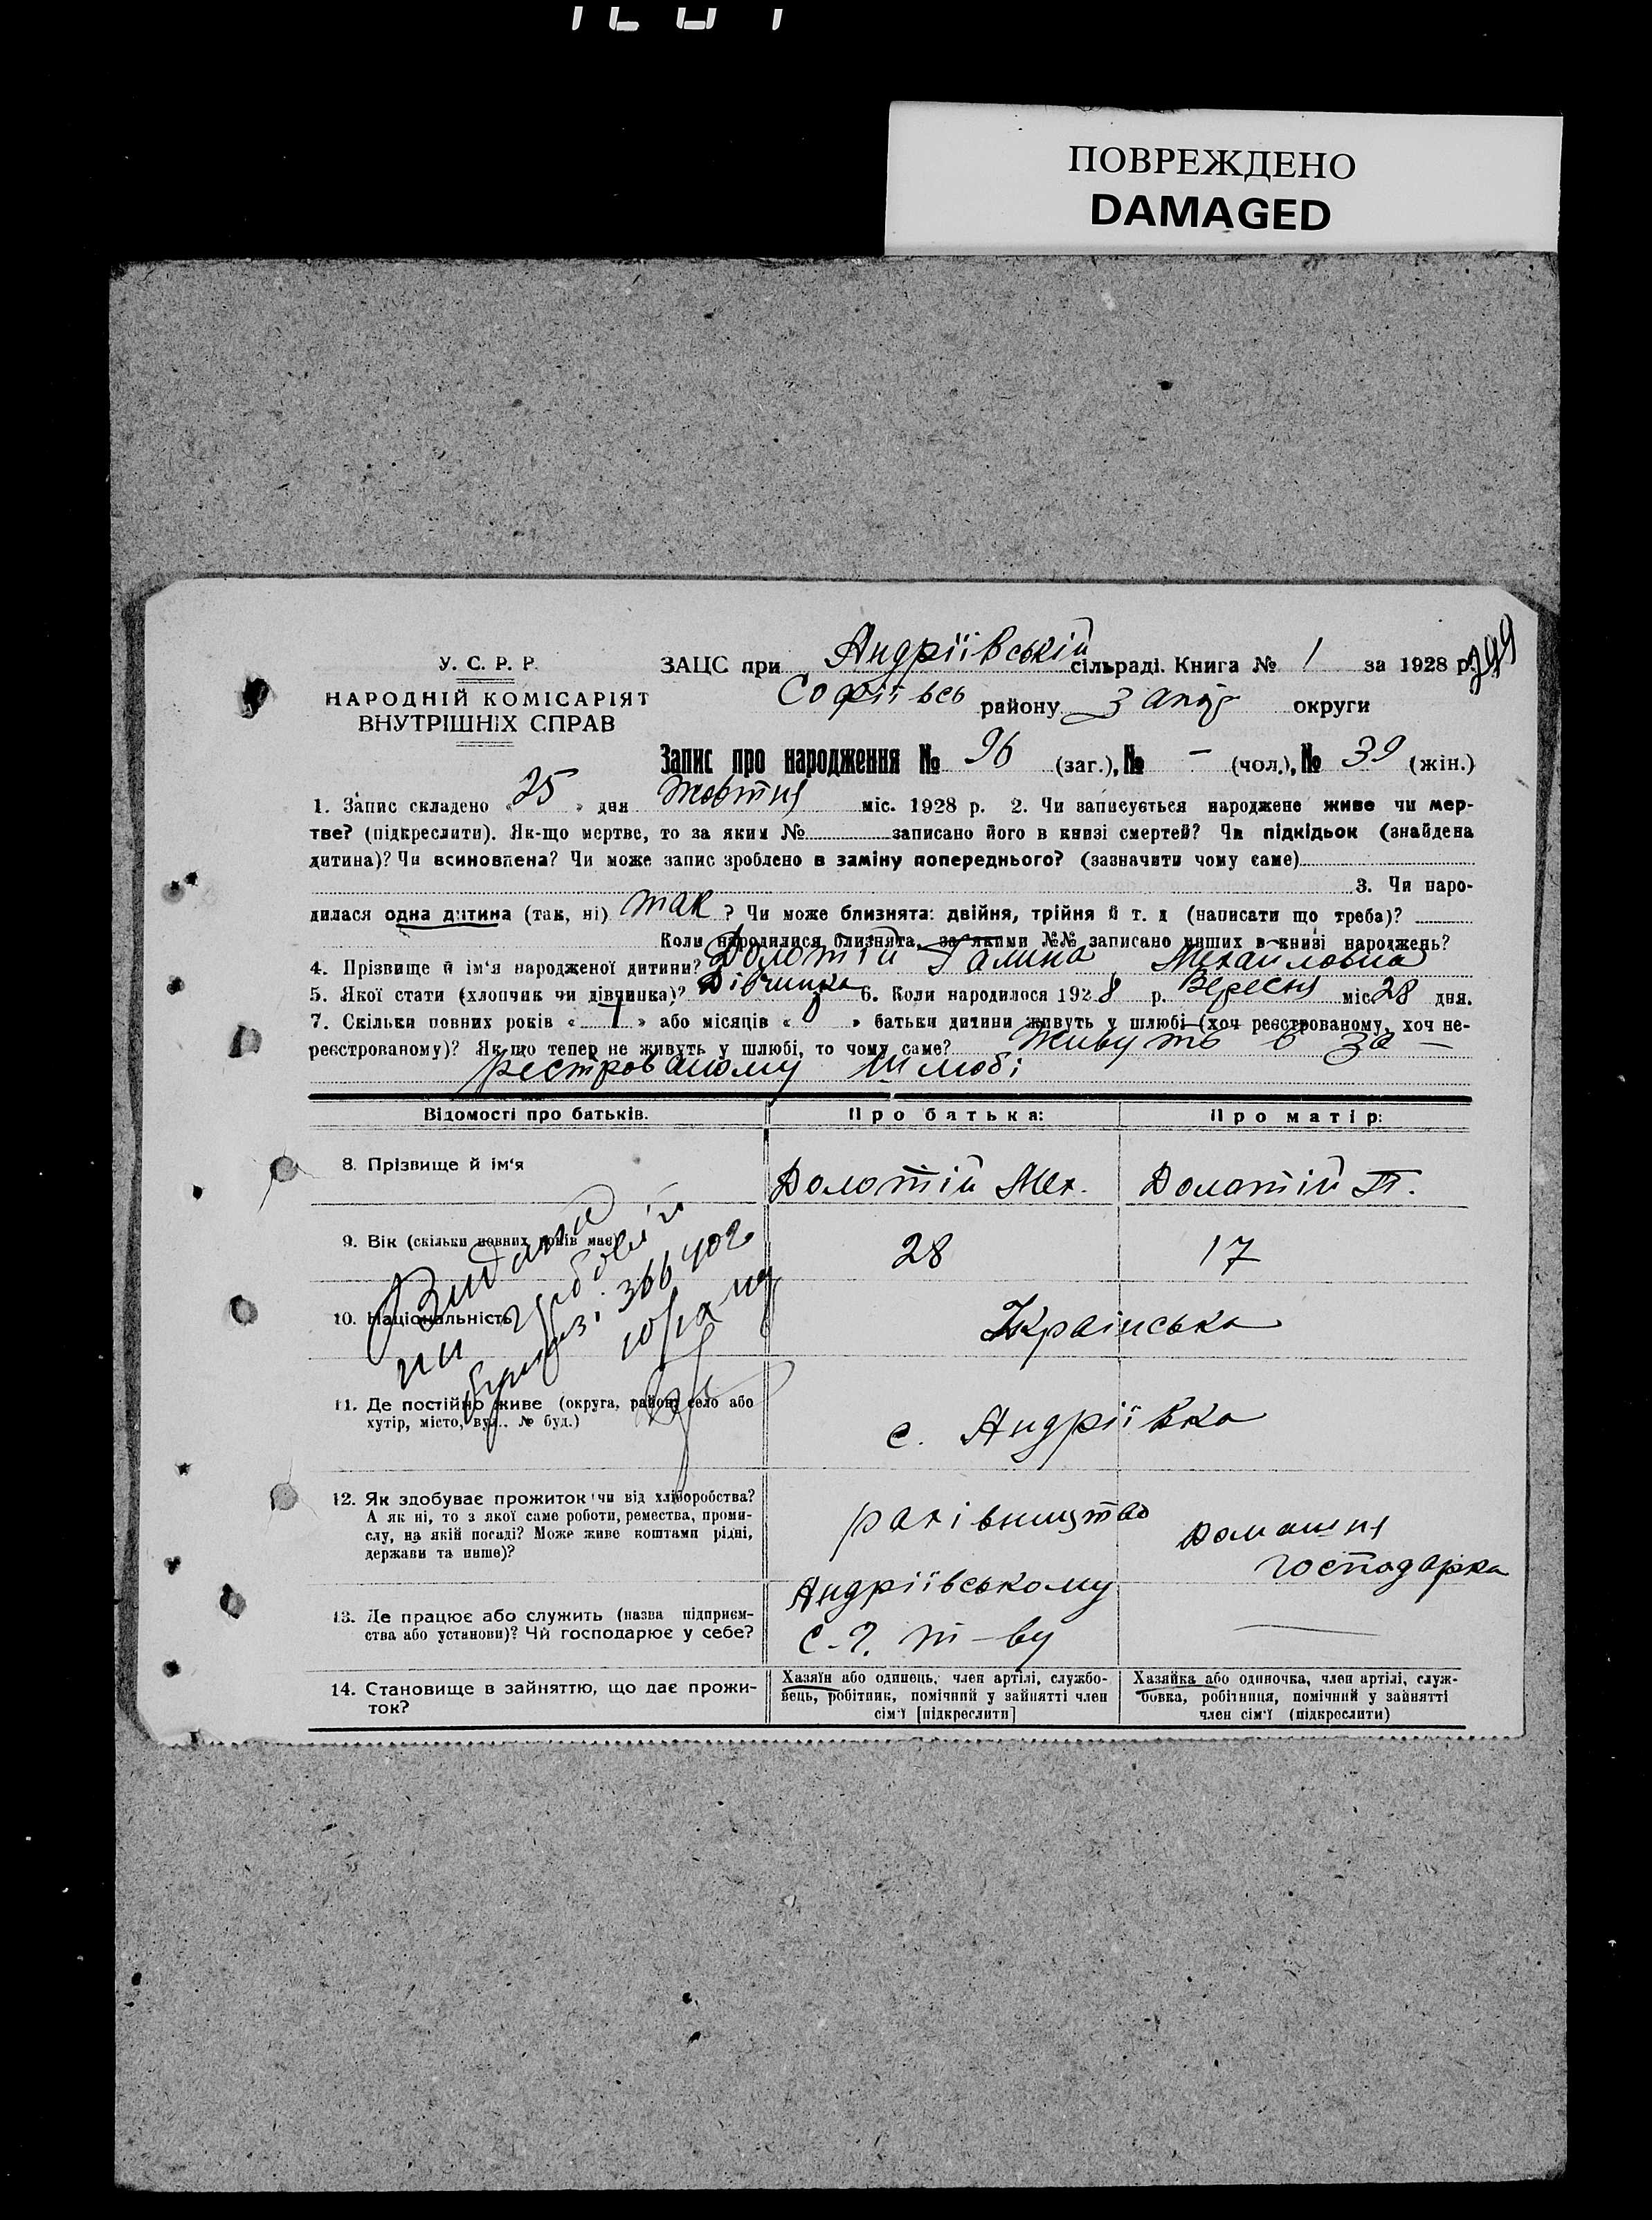 ПОВРЕЖДЕНО
DAMAGED
У. С. Р. Р.
НАРОДНІЙ КОМІСАРІЯТ
ВНУТРІШНІХ СПРАВ
ЗАЦС при Андріївській сільраді. Книга № 1 за 1928 р.
Софіївсь району Запор округи
Запис про народження № 96 (заг.), № – (чол.), № 39 (жін.)
1. Запис складено « 25 » дня жовтня міс. 1928 р. 2. Чи записується народжене живе чи мер-
тве? (підкреслити). Як-що мертве, то за яким № записано його в книзі смертей? Чи підкідьок (знайдена
дитина)? Чи всиновлена? Чи може запис зроблено в заміну попереднього? (зазначити чому саме)
3. Чи наро-
дилася одна дитина (так, ні) так ? Чи може близнята: двійня, трійня й т. д (написати що треба)?
Коли народилися близнята, за якими №№ записано инших в книзі народжень?
4. Прізвище й ім'я народженої дитини? Долотій Галина Механловна
5. Якої стати (хлопчик чи дівчинка)? Дівчинка 6. Коли народилося 1928 р. Вересня міс 28 дня.
7. Скільки повних років « 1 » або місяців « » батьки дитини живуть у шлюбі (хоч реєстрованому, хоч не-
реєстрованому)? Як що тепер не живуть у шлюбі, то чому саме? Живуть в за–
рестрованому шлюбі
Відомості про батьків. Про батька: Про матір:
8. Прізвище й ім'я Долотій Мех. Долотій П.
9. Вік (скільки повних років має) 28 17
10. Національність Українська
Видана
11. Де постійно живе (округа, район, село або
хутір, місто, вул.. № буд.) с. Андріївка
12. Як здобуває прожиток чи від хліборобства?
А як ні, то з якої саме роботи, ремества, проми-
слу, на якій посаді? Може живе коштами рідні,
держави та инше)? рахівництво Домашня господарка
13. Де працює або служить (назва підприєм-
ства або установи)? Чи господарює у себе? Андріївському С-Г. т-ву –
14. Становище в зайняттю, що дає прожи-
ток?
Хазяїн або одинець, член артілі, службо-
вець, робітник, помічний у зайнятті член
сім'ї [підкреслити]
Хазяйка або одиночка, член артілі, служ-
бовка, робітниця, помічний у зайнятті
член сім'ї (підкреслити)